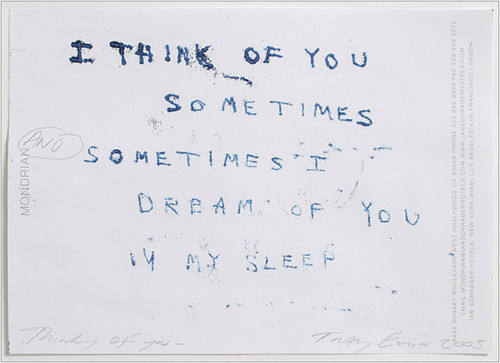 I THINK OF YOU
SOMETIMES
AND
SOMETIMES I
DREAM OF YOU
IN MY SLEEP
MONDRIAN
Thinking of you-
Tracey Emin 2005
8440 SUNSET BOULEVARD WEST HOLLYWOOD CA 90069 PHONE 323 650 8999 FAX 323 650 5215
EMAIL MONDRIAN@IANSCHRAGERHOTELS.COM WWW.IANSCHRAGERHOTELS.COM
IAN SCHRAGER HOTELS: NEW YORK MIAMI LOS ANGELES SAN FRANCISCO LONDON